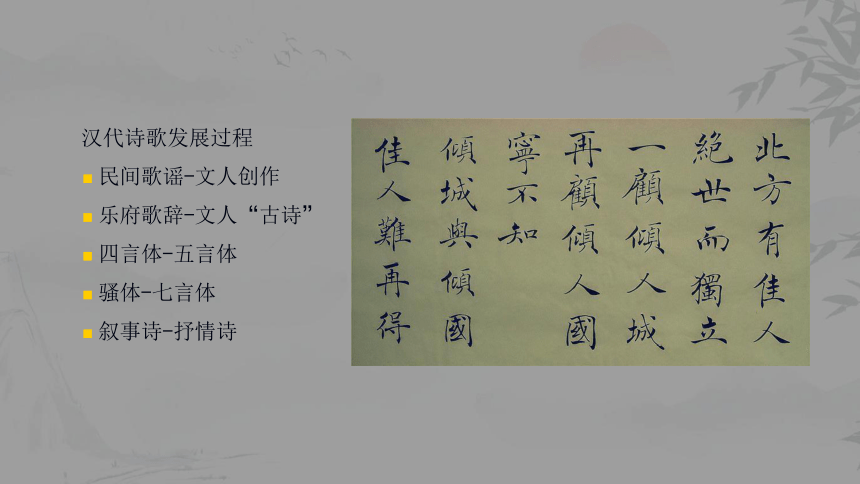 汉代诗歌发展过程
民间歌谣-文人创作
乐府歌辞-文人“古诗”
四言体-五言体
骚体-七言体
叙事诗-抒情诗
北方有佳人
絕世而獨立
一顧傾人城
再顧傾人國
寧不知
傾城與傾國
佳人難再得